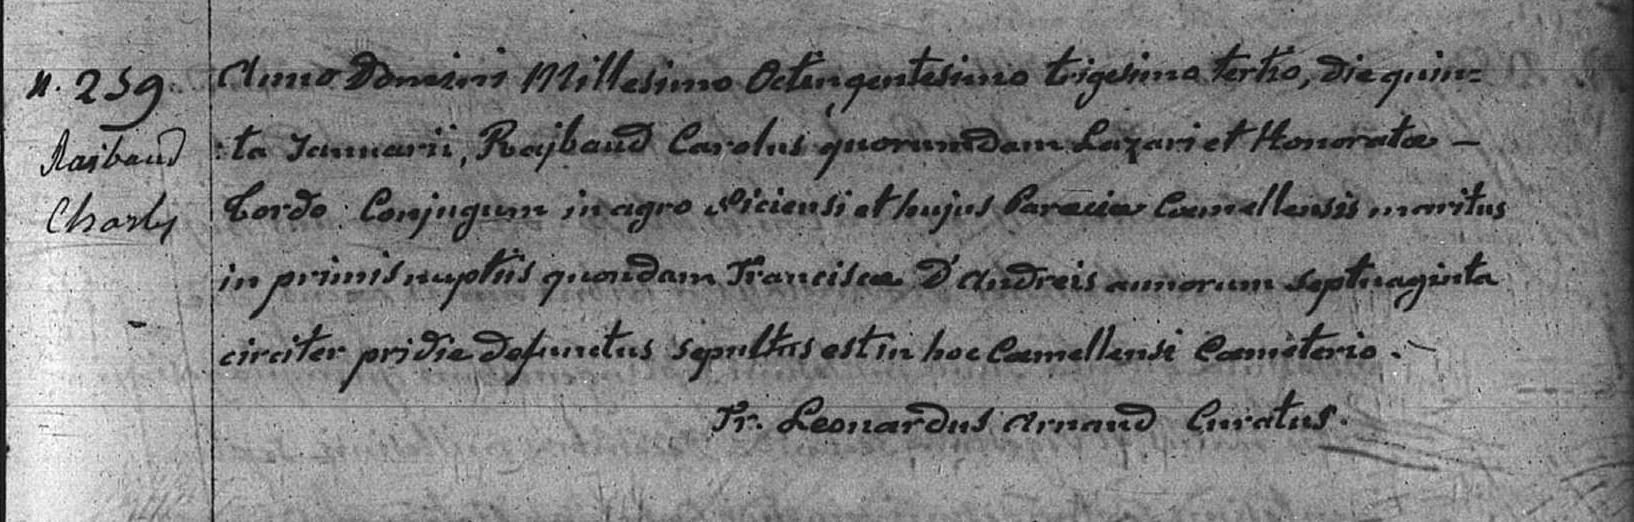 n. 259
Raibaud
Charles
Anno Domini Millesimo Octingentesimo trigesimo tertio, die quin-
:ta Januarii, Rajbaud Carolus quorumdam Lazari et Honoratæ -
Tordo Conjugum in agro Niciensi et hujus Pareciæ Camellensis maritus
in primis nuptiis quondam Franciscæ D'Andreis annorum septuaginta
circiter pridie defunctus sepultus est in hoc Camellensi Cœmeterio.
Fr. Leonardus Arnaud Curatus.